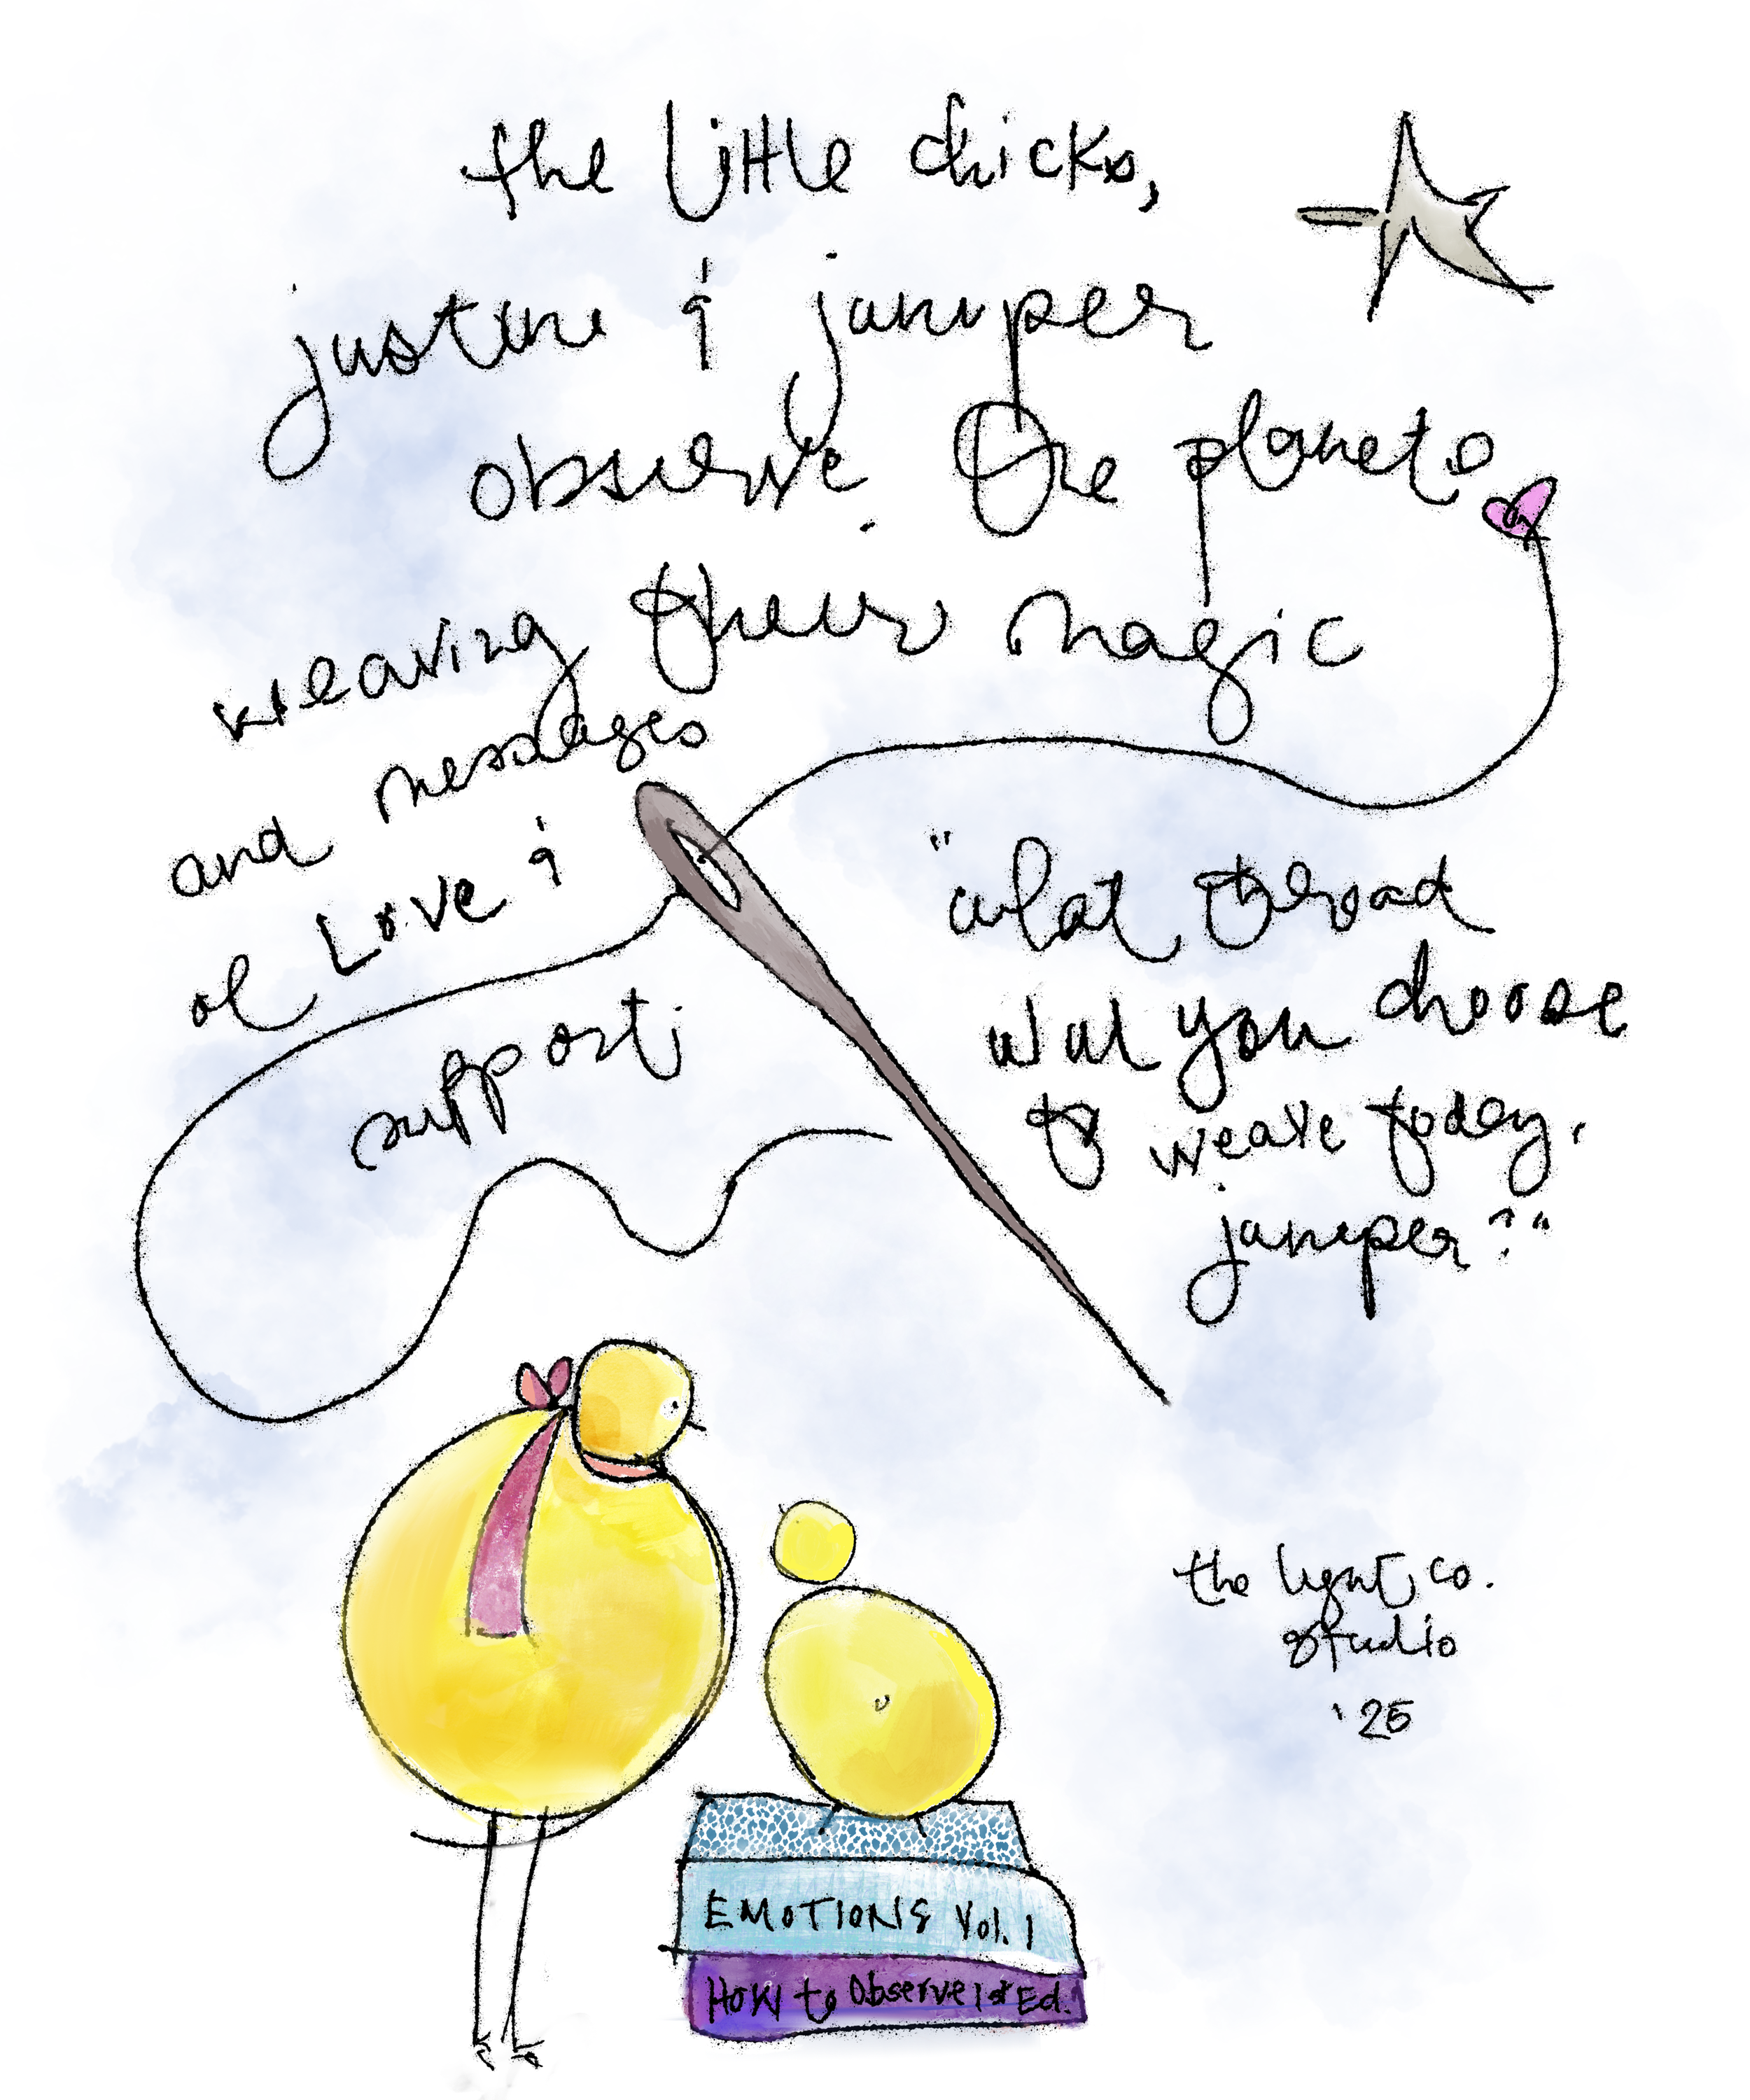 the little chicks,
justine & juniper
observe the planets
weaving their magic
and messages
of Love &
support;
"what thread
will you choose
to weave today,
juniper?"
the light co.
studio
'25
EMOTIONS Vol. 1
How to Observe 1st Ed.